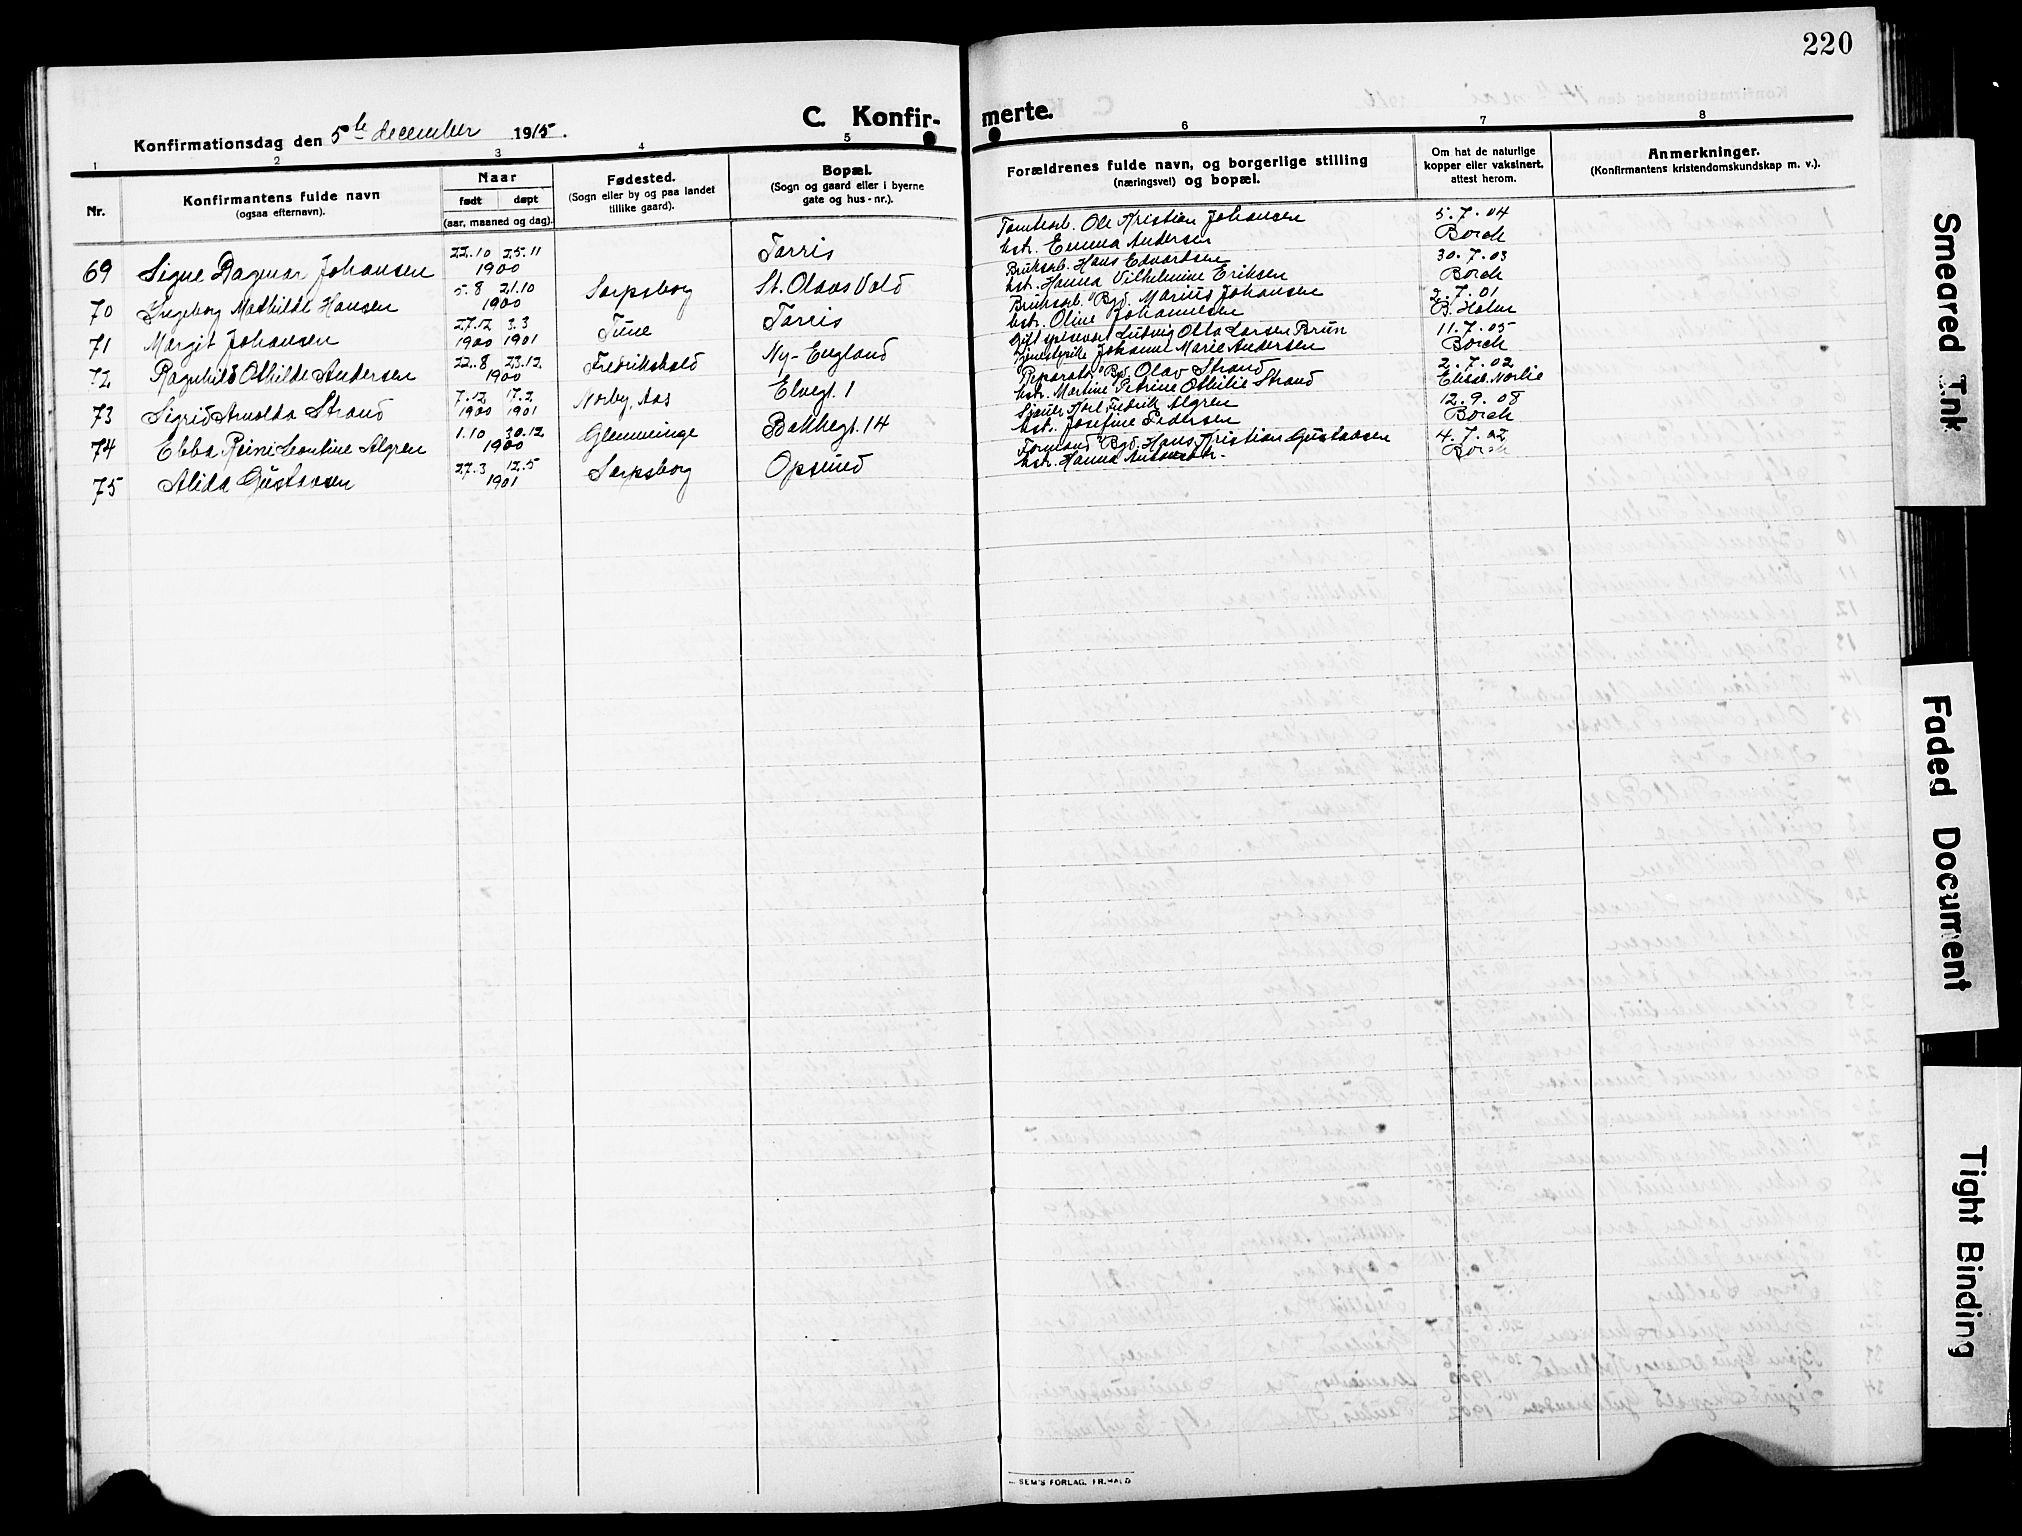 220
C. Konfir- merte.
Konfirmationsdag den 5te december 1915.
1 2 3 4 5 6 7 8
Nr.
Konfirmantens fulde navn
(ogsaa efternavn).
Naar
født døpt
(aar, maaned og dag).
Fødested.
(Sogn eller by og paa landet
tillike gaard).
Bopæl.
(Sogn og gaard eller i byerne
gate og hus-nr.).
Forældrenes fulde navn, og borgerlige stilling
(næringsvei) og bopæl.
Om hat de naturlige
kopper eller vaksinert,
attest herom.
Anmerkninger.
(Konfirmantens kristendomskundskap m. v.).
69 Signe Dagmar Johansen 22.10 25.11 1900 Torris
Tomtearb. Ole Kristian Johansen
hstr. Emma Andersen
5.7.04
Borch
70 Ingeborg Mathilde Hansen 5.8 21.10 1900 Sarpsborg St. Olavs Vold
Bruksarb. Hans Edvardsen
hstr. Hanna Vilhelmine Eriksen
30.7.03
Borch
71 Margit Johansen 27.12 1900 3.3 1901 Tune Torris
Bruksarb. Marius Johansen
hstr. Oline Johannesen
2.7.01
B. Holm
72 Ragnhild Othilde Andersen 22.8 23.12 1900 Fredrikshald Ny-England
Ludvig Otto Larsen Brun
Johanne Marie Andersen
11.7.05
Borch
73 Sigrid Arnolda Strand 7.12 1900 17.2 1901 Norby, Aas Elvegt. 1
Reparatør Olav Strand
hstr. Martine Petrine Othilie Strand
2.7.02
Elisab. Norlie
74 Ebba Reini Leontine Algren 1.10 30.12 1900 Glemminge Bakkegt. 14
Sjauer Karl Fredrik Algren
hstr. Josefine Pedersen
12.9.08
Borch
75 Alida Gustavsen 27.3 12.5 1901 Sarpsborg Opsund
Formand Hans Kristian Gustavsen
hstr. Hanna
4.7.02
Borch
SEM'S FORLAG, FR.HALD
Smeared Ink
Faded Document
Tight Binding